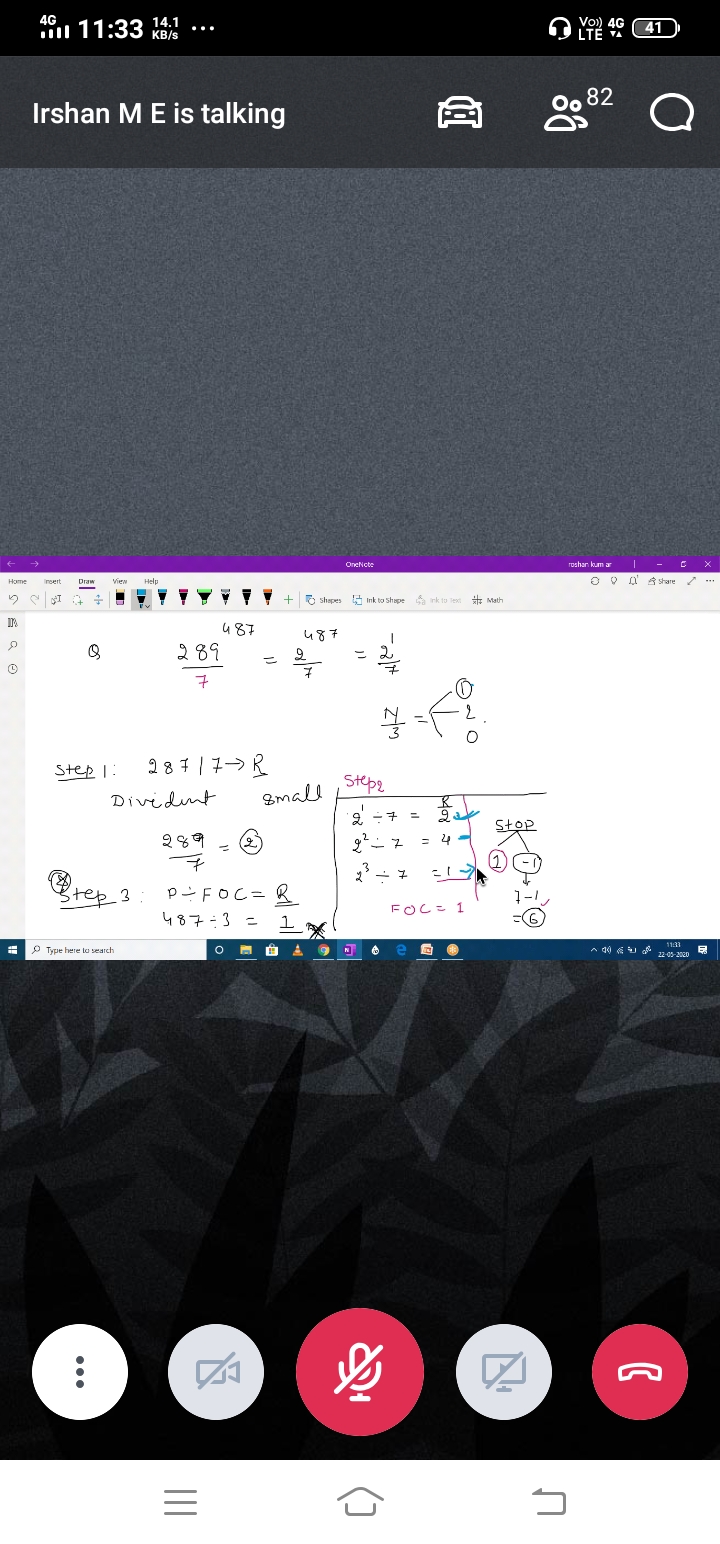 4G 11:33 14.1 KB/s ... Vo)) LTE 4G 41
Irshan M E is talking 82
OneNote roshan kum ar
Home Insert Draw View Help Share
Shapes Ink to Shape Ink to Text Math
Q 289^487 / 7 = 2^487 / 7 = 2^1 / 7
N/3 = 1
2
0
Step 1: 287 | 7 → R
Dividunt small
289 / 7 = 2
Step2
R
2^1 ÷ 7 = 2
2^2 ÷ 7 = 4
2^3 ÷ 7 = 1
FOC = 1
Stop
1 -1
7-1
= 6
Step 3: P ÷ FOC = R
487 ÷ 3 = 1
Type here to search
11:33
22-05-2020